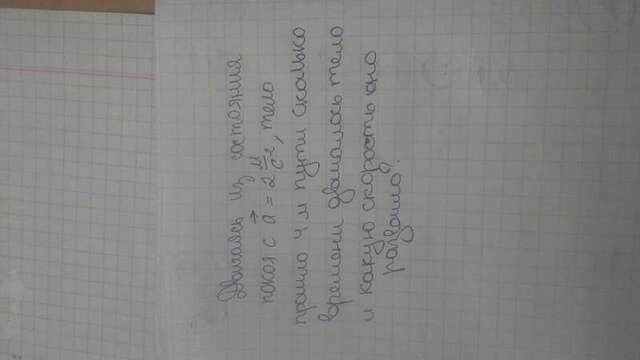 Двигаясь из состояния
покоя с a⃗ = 2 м/с², тело
прошло 4 м пути сколько
времени двигалось тело
и какую скорость оно
развило?